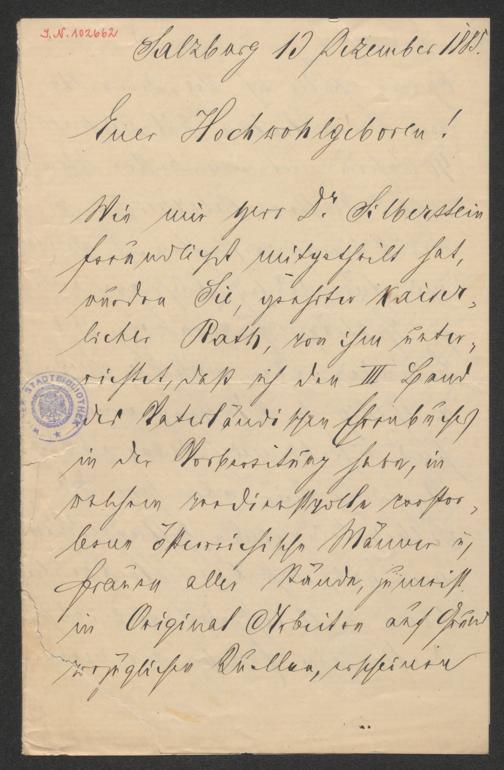 J.N. 102662
Salzburg 13 Dezember 1885.
Euer Hochwohlgeboren!
Wie mir Herr Dr. Silberstein
freundlichst mitgetheilt hat,
wurden Sie, geehrter Kaiser-
licher Rath, von ihm unter-
richtet, daß ich den III Band
des Vaterländischen Ehrenbuches
in der Vorbereitung habe, in
welchem verdienstvolle verstor-
bene österreichische Männer u,
Frauen aller Stände, zumeist
in Original Arbeiten auf Grund
vorzüglicher Quellen, erscheinen
STADTBIBLIOTHEK